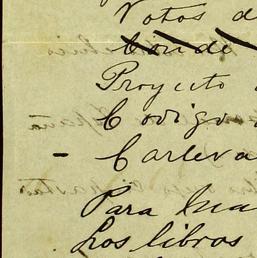 Votos d
Conde
Proyecto
Codigo
- Carleva
Para hua
Los libros